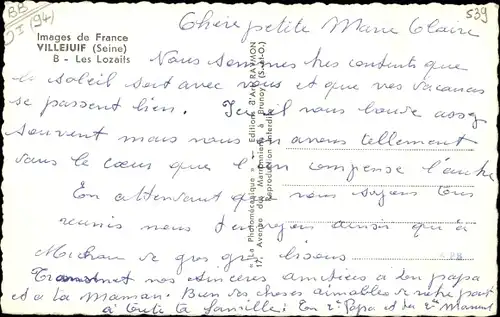 BB
I (94)
539
Images de France
VILLEJUIF (Seine)
B - Les Lozaits
Chère petite Marie Claire
Nous sommes très contents que
le soleil soit avec vous et que vos vacances
se passent bien. Ici il nous boude assez
souvent mais nous en avons tellement
dans le cœur que l'un compense l'autre
En attendant que nous soyons tous
réunis nous t'envoyons ainsi qu'à
Michou de gros gros bisous
Transmet nos sincères amitiés à ton papa
et à ta Maman. Bien des choses aimables de notre part
à toute ta famille. Ton 2e Papa et ta 2e Maman
« La Photomécanique » - Editions d'Art RAYMON
17, Avenue des Marronniers, à Brunoy (S.-et-O.)
Reproduction interdite